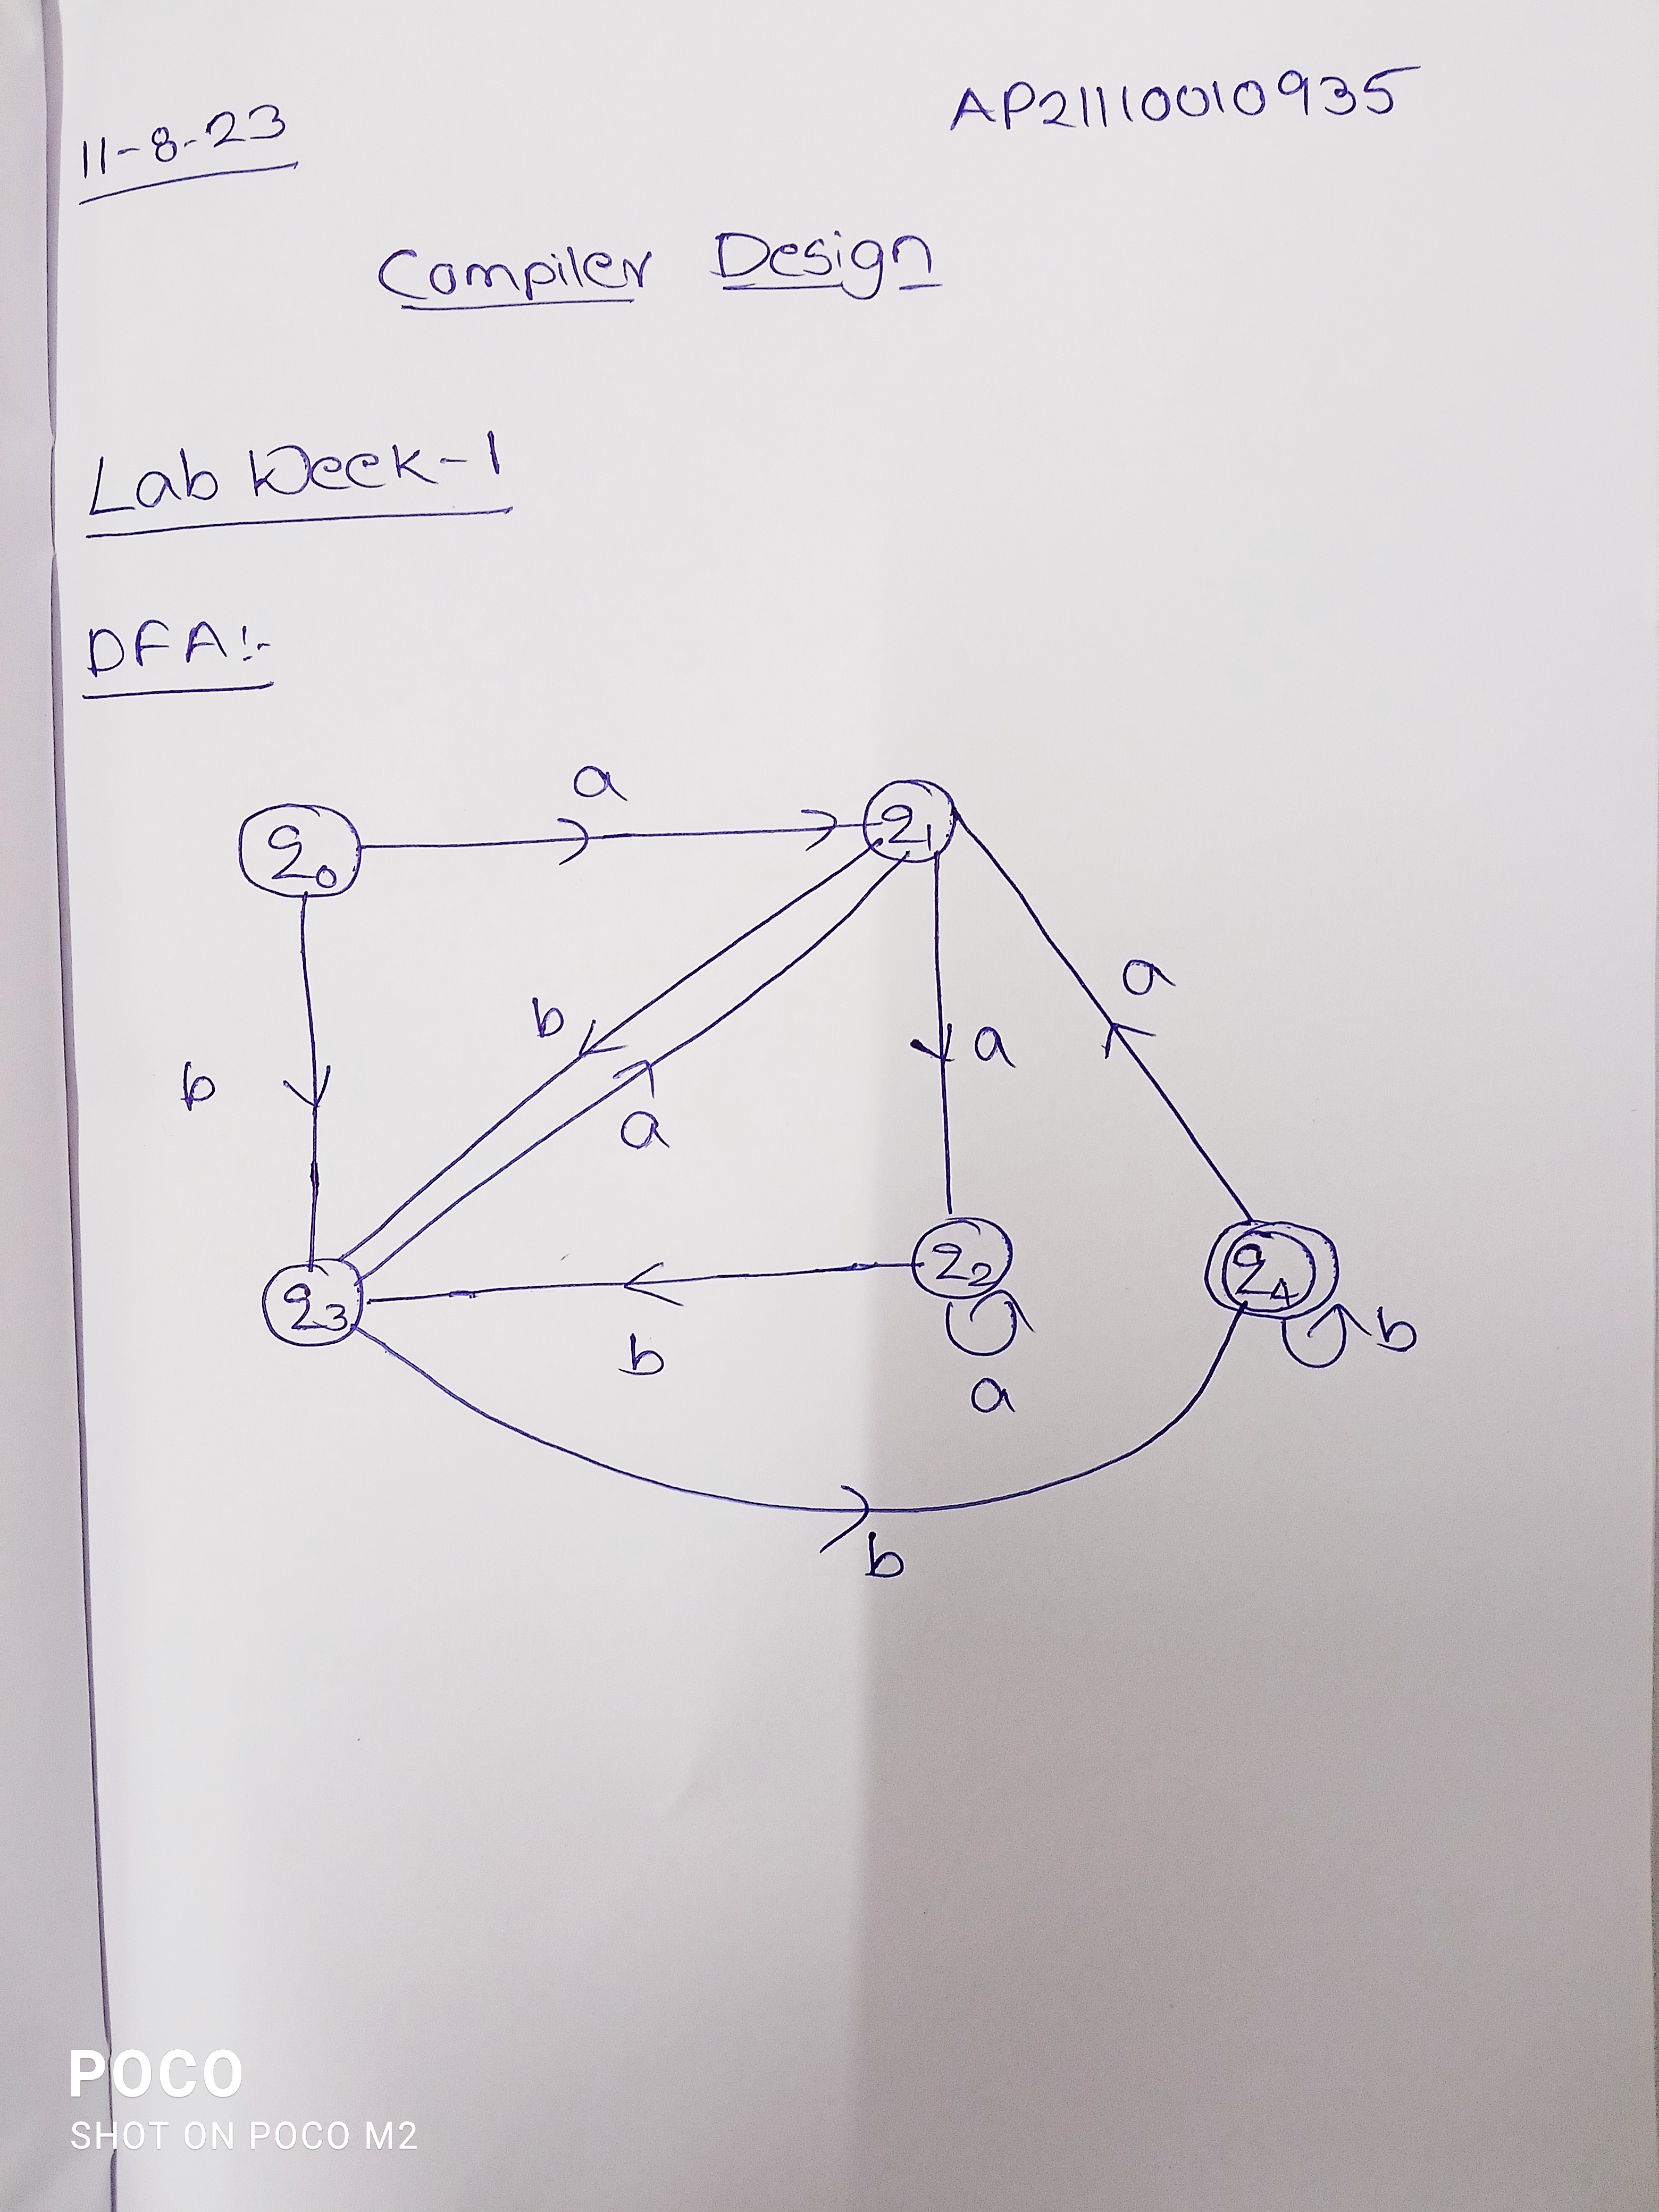 11-8-23
AP21110010935
Compiler Design
Lab Week-1
DFA:-
a
q0
q1
a
b
b
a
a
q3
q2
q4
b
b
a
b
POCO
SHOT ON POCO M2